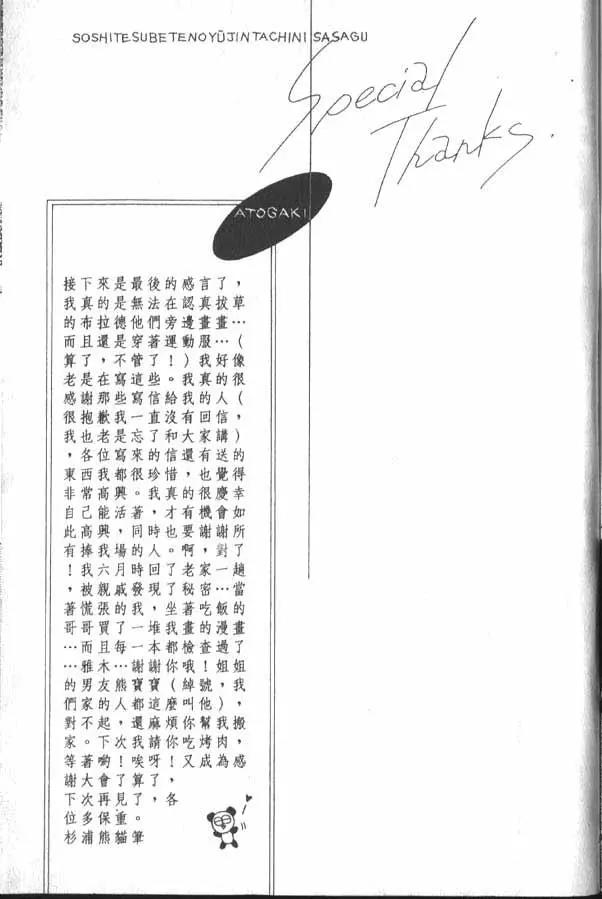 SOSHITESUBETENOYŪJINTACHINI SASAGU
Special
Thanks.
ATOGAKI
接下來是最後的感言了，
我真的是無法在認真拔草
的布拉德他們旁邊畫畫…
而且還是穿著運動服…（
算了，不管了！）我好像
老是在寫這些。我真的很
感謝那些寫信給我的人（
很抱歉我一直沒有回信，
我也老是忘了和大家講）
，各位寫來的信還有送的
東西我都很珍惜，也覺得
非常高興。我真的很慶幸
自己能活著，才有機會如
此高興，同時也要謝謝所
有捧我場的人。啊，對了
！我六月時回了老家一趟
，被親戚發現了秘密…當
著慌張的我，坐著吃飯的
哥哥買了一堆我畫的漫畫
…而且每一本都檢查過了
…雅木…謝謝你哦！姐姐
的男友熊寶寶（綽號，我
們家的人都這麼叫他），
對不起，還麻煩你幫我搬
家。下次我請你吃烤肉，
等著喲！唉呀！又成為感
謝大會了算了，
下次再見了，各
位多保重。
杉浦熊貓筆